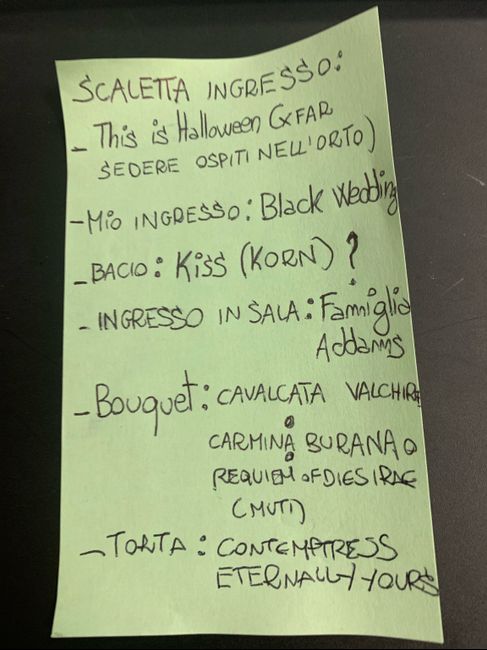 SCALETTA INGRESSO:
- This is Halloween (xFAR
SEDERE OSPITI NELL'ORTO)
- MIO INGRESSO: Black Wedding
- BACIO: Kiss (KORN) ?
- INGRESSO IN SALA: Famiglia
Addams
- Bouquet: CAVALCATA VALCHIRE
o
CARMINA BURANA O
o
REQUIEM OF DIES IRAE
(MUTI)
- TORTA: CONTEMPTRESS
ETERNALLY YOURS